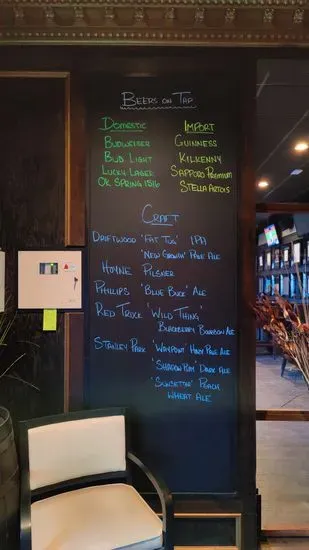 Beers on Tap
Domestic
Budweiser
Bud Light
Lucky Lager
Ok Spring 1516
Import
Guinness
Kilkenny
Sapporo Premium
Stella Artois
Craft
Driftwood 'Fat Tug' IPA
'New Growth' Pale Ale
Hoyne Pilsner
Phillips 'Blue Buck' Ale
Red Truck 'Wild Thing'
Blackberry Bourbon Ale
Stanley Park 'Waypoint' Hazy Pale Ale
'Shadow Run' Dark Ale
'Sunsetter' Peach
Wheat Ale